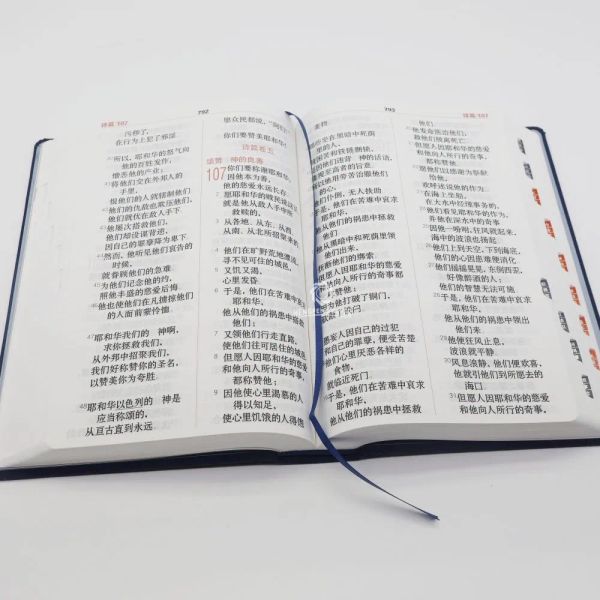 诗篇 107
792
污秽了,
在行为上犯了邪淫
所以,耶和华的怒气向
他的百姓发作,
憎恶他的产业;
将他们交在外邦人的
手里,
恨他们的人就辖制他们
他们的仇敌欺压他们,
他们就伏在敌人手下
他屡次搭救他们,
他们却设谋背逆,
因自己的罪孽降为卑下
然而,他听见他们哀告的
时候,
就眷顾他们的急难
为他们记念他的约,
照他丰盛的慈爱后悔
他也使他们在凡掳掠他们
的人面前蒙怜恤
47 耶和华我们的 神啊,
求你拯救我们,
从外邦中招聚我们,
我们好称赞你的圣名,
以赞美你为夸胜
48 耶和华以色列的 神是
应当称颂的,
从亘古直到永远。
愿众民都说:“阿们!”
你们要赞美耶和华!
诗篇卷五
颂赞 神的良善
107 你们要称谢耶和华,
因他本为善,
他的慈爱永远长存。
2 愿耶和华的赎民说这话
就是他从敌人手中所
救赎的,
3 从各地、从东、从西、
从南、从北所招聚来的
4 他们在旷野荒地漂流,
寻不见可住的城邑,
5 又饥又渴,
心里发昏
6 于是,他们在苦难中哀求
耶和华,
他从他们的祸患中搭救
他们:
7 又领他们行走直路,
使他们往可居住的城邑,
8 但愿人因耶和华的慈爱
和他向人所行的奇事,
都称赞他;
9 因他使心里渴慕的人
得以知足,
使心里饥饿的人得饱
793
诗篇 107
美物
些坐在黑暗中死荫
里的人,
困苦和铁链捆锁,
他们违背 神的话语,
至高者的旨意,
他用劳苦治服他们
的心,
他们仆倒,无人扶助
他们在苦难中哀求
耶和华,
他从他们的祸患中拯救
他们
他从黑暗中和死荫里领
他们出来,
折断他们的绑索
但愿人因耶和华的慈爱
和他向人所行的奇事都
称赞他;
因为他打破了铜门,
砍断了铁闩
愚妄人因自己的过犯
和自己的罪孽,便受苦楚
他们心里厌恶各样的
食物,
就临近死门
于是,他们在苦难中哀求
耶和华,
他从他们的祸患中拯救
他们。
他发命医治他们,
救他们脱离死亡
但愿人因耶和华的慈爱
和他向人所行的奇事
都称赞他。
愿他们以感谢为祭献
给他,
欢呼述说他的作为
在海上坐船,
在大水中经理事务的,
他们看见耶和华的作为,
并他在深水中的奇事
因他一吩咐,狂风就起来,
海中的波浪也扬起
他们上到天空,下到海底,
他们的心因患难便消化
他们摇摇晃晃,东倒西歪,
好像醉酒的人;
他们的智慧无法可施
于是,他们在苦难中哀求
耶和华,
他从他们的祸患中领出
他们来
他使狂风止息,
波浪就平静
风息浪静,他们便欢喜,
他就引他们到所愿去的
海口
31 但愿人因耶和华的慈爱
和他向人所行的奇事,